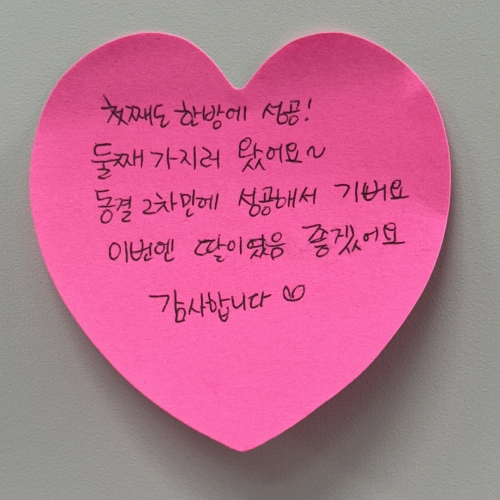 첫째도 한방에 성공!
둘째 가지러 왔어요~
동결 2차만에 성공해서 기뻐요
이번엔 딸이였음 좋겠어요
감사합니다 ♡